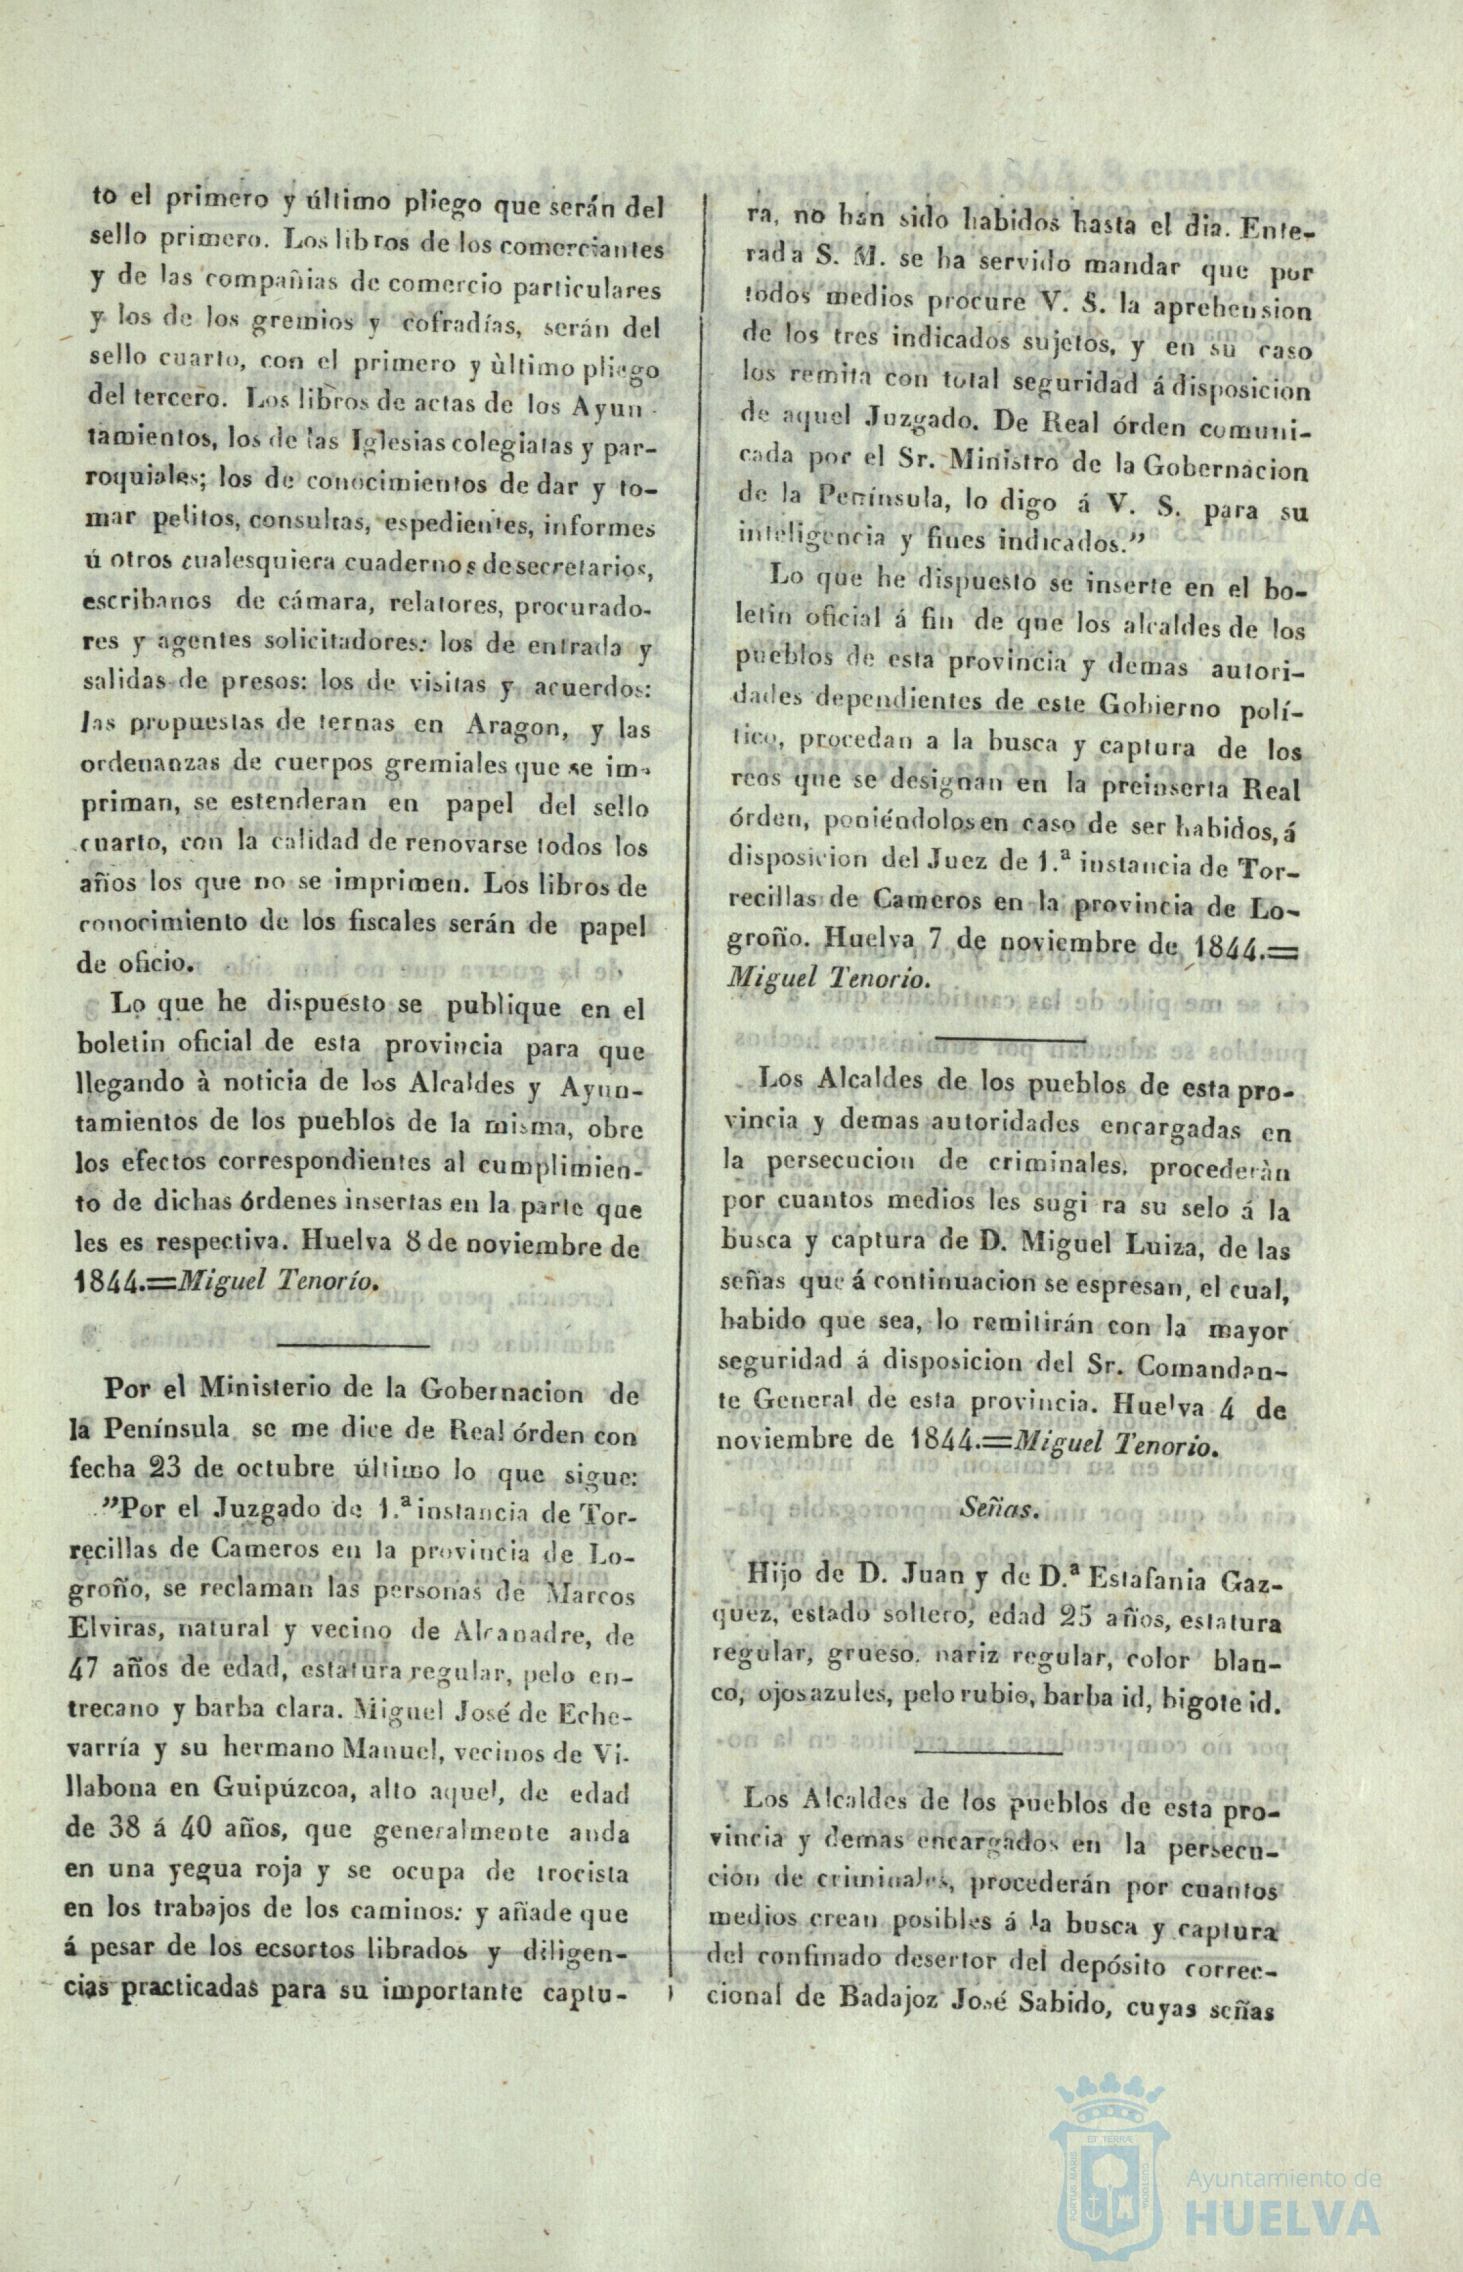 to el primero y último pliego que serán del
sello primero. Los libros de los comerciantes
y de las compañias de comercio particulares
y los de los gremios y cofradías, serán del
sello cuarto, con el primero y ùltimo pliego
del tercero. Los libros de actas de los Ayun-
tamientos, los de las Iglesias colegiatas y par-
roquiales; los de conocimientos de dar y to-
mar pelitos, consultas, espedientes, informes
ú otros cualesquiera cuadernos de secretarios,
escribanos de cámara, relatores, procurado-
res y agentes solicitadores: los de entrada y
salidas de presos: los de visitas y acuerdos:
las propuestas de ternas en Aragon, y las
ordenanzas de cuerpos gremiales que se im-
priman, se estenderan en papel del sello
cuarto, con la calidad de renovarse todos los
años los que no se imprimen. Los libros de
conocimiento de los fiscales serán de papel
de oficio.
Lo que he dispuesto se publique en el
boletin oficial de esta provincia para que
llegando à noticia de los Alcaldes y Ayun-
tamientos de los pueblos de la misma, obre
los efectos correspondientes al cumplimien-
to de dichas órdenes insertas en la parte que
les es respectiva. Huelva 8 de noviembre de
1844.=Miguel Tenorío.
Por el Ministerio de la Gobernacion de
la Península se me dice de Real órden con
fecha 23 de octubre último lo que sigue:
"Por el Juzgado de 1.ª instancia de Tor-
recillas de Cameros en la provincia de Lo-
groño, se reclaman las personas de Marcos
Elviras, natural y vecino de Alcanadre, de
47 años de edad, estatura regular, pelo en-
trecano y barba clara. Miguel José de Eche-
varría y su hermano Manuel, vecinos de Vi-
llabona en Guipúzcoa, alto aquel, de edad
de 38 á 40 años, que generalmente anda
en una yegua roja y se ocupa de trocista
en los trabajos de los caminos: y añade que
á pesar de los ecsortos librados y diligen-
cias practicadas para su importante captu-
ra, no han sido habidos hasta el dia. Ente-
rada S. M. se ha servido mandar que por
todos medios procure V. S. la aprehension
de los tres indicados sujetos, y en su caso
los remita con total seguridad á disposicion
de aquel Juzgado. De Real órden comuni-
cada por el Sr. Ministro de la Gobernacion
de la Península, lo digo á V. S. para su
inteligencia y fines indicados."
Lo que he dispuesto se inserte en el bo-
letin oficial á fin de que los alcaldes de los
pueblos de esta provincia y demas autori-
dades dependientes de este Gobierno polí-
tico, procedan a la busca y captura de los
reos que se designan en la preinserta Real
órden, poniéndolos en caso de ser habidos, á
disposicion del Juez de 1.ª instancia de Tor-
recillas de Cameros en la provincia de Lo-
groño. Huelva 7 de noviembre de 1844.=
Miguel Tenorio.
Los Alcaldes de los pueblos de esta pro-
vincia y demas autoridades encargadas en
la persecucion de criminales, procederàn
por cuantos medios les sugi ra su selo á la
busca y captura de D. Miguel Luiza, de las
señas que á continuacion se espresan, el cual,
habido que sea, lo remitirán con la mayor
seguridad á disposicion del Sr. Comandan-
te General de esta provincia. Huelva 4 de
noviembre de 1844.=Miguel Tenorio.
Señas.
Hijo de D. Juan y de D.ª Estafania Gaz-
quez, estado soltero, edad 25 años, estatura
regular, grueso, nariz regular, color blan-
co, ojos azules, pelo rubio, barba id, bigote id.
Los Alcaldes de los pueblos de esta pro-
vincia y demas encargados en la persecu-
cion de criminales, procederán por cuantos
medios crean posibles á la busca y captura
del confinado desertor del depósito correc-
cional de Badajoz José Sabido, cuyas señas
ET TERRÆ
PORTUS MARIS
CUSTODIA
Ayuntamiento de
HUELVA